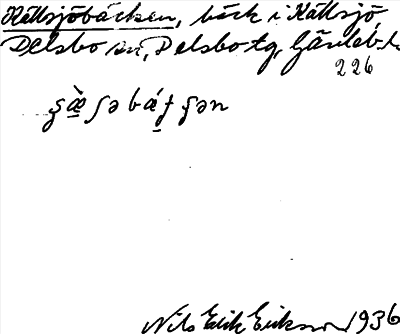 Källsjöbäcken, bäck i Källsjö,
Delsbo sn, Delsbo tg, Gävleb. l.
226
Nils Erik Eriksson 1936